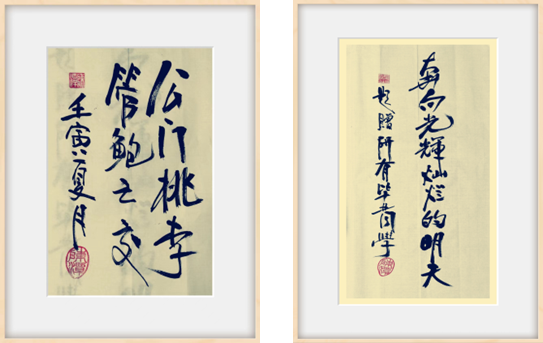 公门桃李
管鲍之交
壬寅夏月
奔向光輝灿烂的明天
题赠所有毕业同學